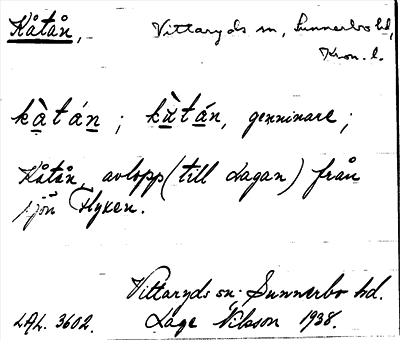 Kåtån, Vittaryds sn, Sunnerbo hd,
Kron. l.
kàtán ; kùtán, genuinare ;
Kåtån, avlopp (till Lagan) från
sjön Flyxen.
Vittaryds sn, Sunnerbo hd.
LAL. 3602. Lage Nilsson 1938.